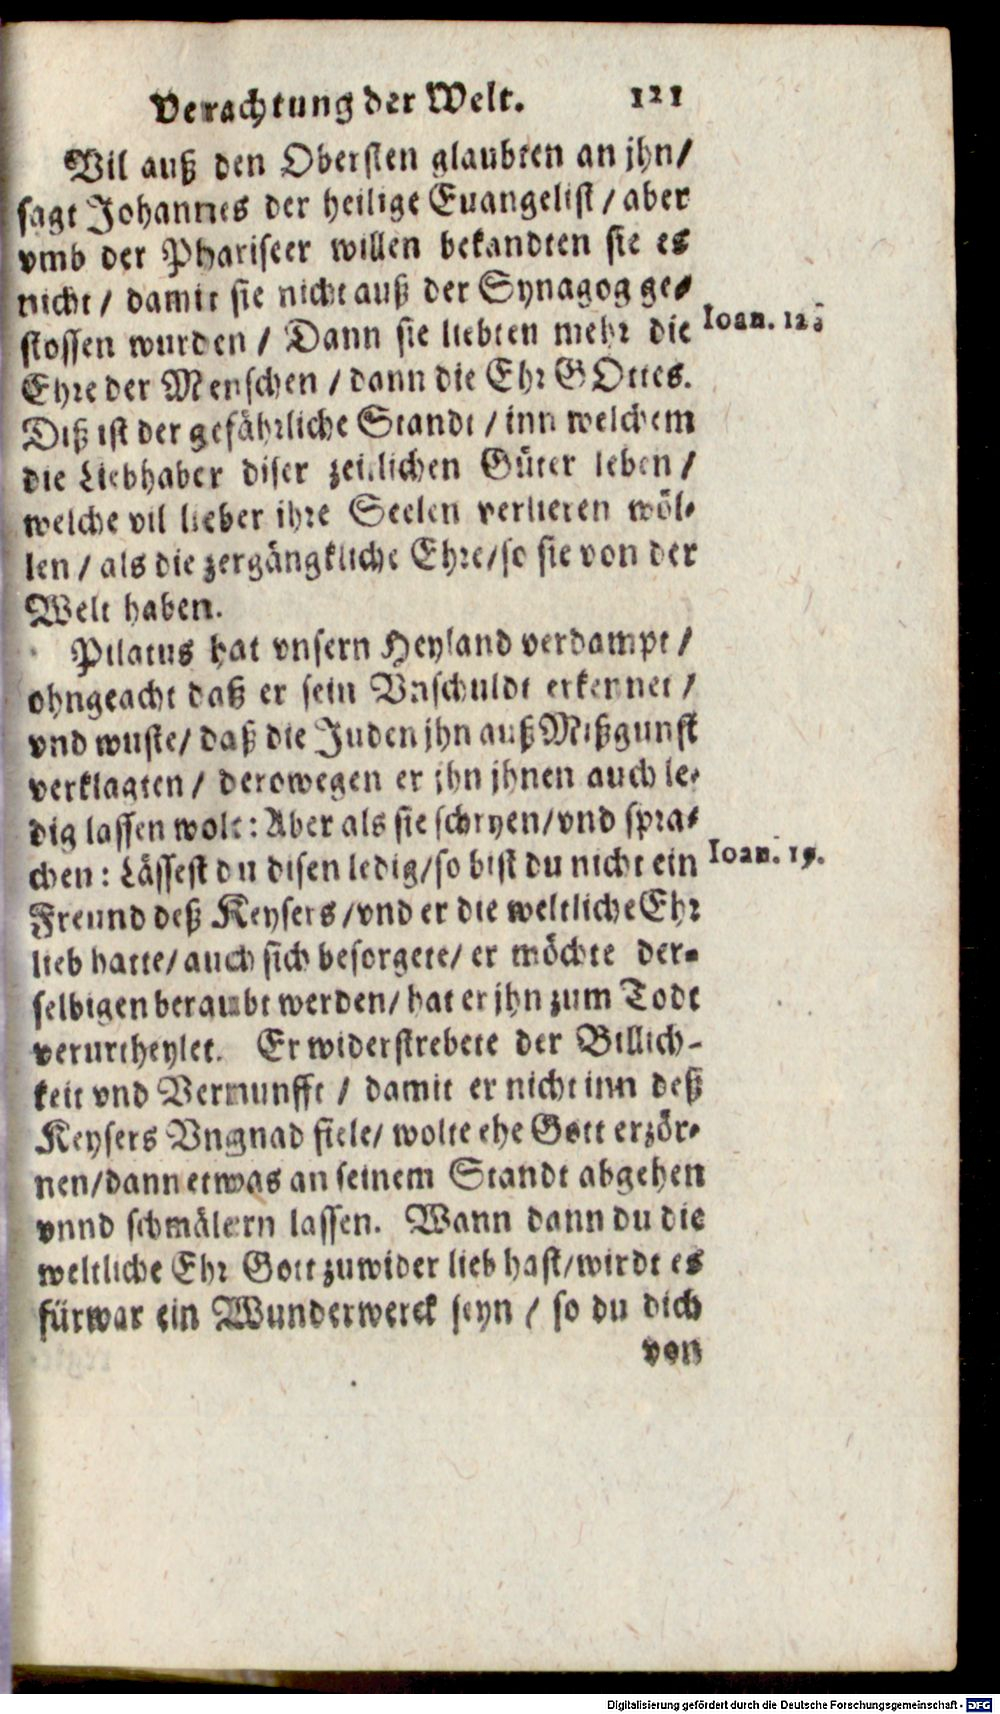 Verachtung der Welt. 121
Vil auß den Obersten glaubten an jhn/
sagt Johannes der heilige Euangelist / aber
vmb der Phariseer willen bekandten sie es
nicht / damit sie nicht auß der Synagog ge-
stossen wurden / Dann sie liebten mehr die
Ioan. 12.
Ehre der Menschen / dann die Ehr GOttes.
Diß ist der gefährliche Standt / inn welchem
die Liebhaber diser zeitlichen Güter leben /
welche vil lieber ihre Seelen verlieren wöl-
len / als die zergängkliche Ehre/so sie von der
Welt haben.
Pilatus hat vnsern Heyland verdampt /
ohngeacht daß er sein Vnschuldt erkennet /
vnd wuste/ daß die Juden jhn auß Mißgunst
verklagten / derowegen er jhn jhnen auch le-
dig lassen wolt: Aber als sie schryen/vnd spra-
chen: Lässest du disen ledig/so bist du nicht ein
Ioan. 19.
Freund deß Keysers /vnd er die weltliche Ehr
lieb hatte/ auch sich besorgete/ er möchte der-
selbigen beraubt werden/ hat er jhn zum Todt
verurtheylet. Er widerstrebete der Billich-
keit vnd Vernunfft / damit er nicht inn deß
Keysers Vngnad fiele/ wolte ehe Gott erzör-
nen/dann etwas an seinem Standt abgehen
vnnd schmälern lassen. Wann dann du die
weltliche Ehr Gott zuwider lieb hast/wirdt es
fürwar ein Wunderwerck seyn / so du dich
von
Digitalisierung gefördert durch die Deutsche Forschungsgemeinschaft - DFG